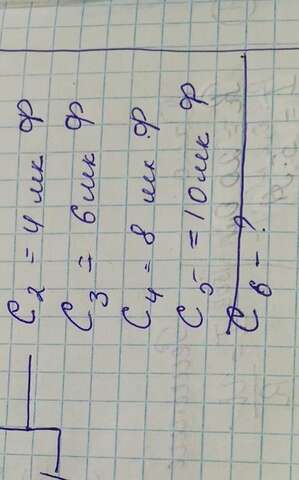 C2 = 4 мк Ф
C3 = 6 мк Ф
C4 = 8 мк Ф
C5 = 10 мк Ф
C6 - ?